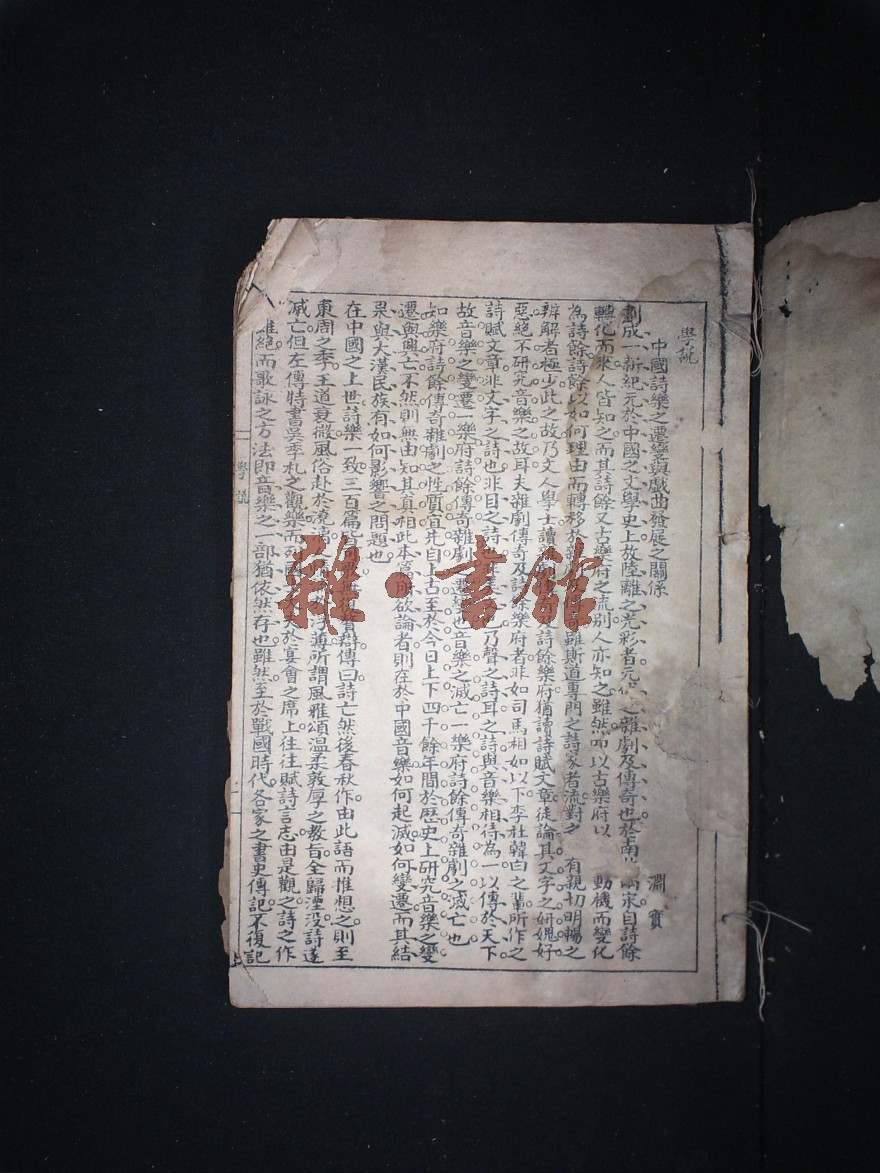 學説
中國詩樂之遷變與戲曲發展之關係
淵實
劃成一新紀元於中國之文學史上放陸離之光彩者元之雜劇及傳奇也於南宋自詩餘
轉化而來人皆知之而其詩餘又古樂府之流別人亦知之雖然以古樂府以動機而變化
為詩餘詩餘以如何理由而轉移於奇雖斯道專門之詩家者流對之有親切明暢之
辨解者極少此之故乃文人學士讀詩餘樂府猶讀詩賦文章徒論其文字之妍媸好
惡絕不研究音樂之故耳夫雜劇傳奇及詩餘樂府者非如司馬相如以下李杜韓白之輩所作之
詩賦文章非文字之詩也非目之詩也乃聲之詩耳之詩與音樂相待為一以傳於天下
故音樂之變遷一樂府詩餘傳奇雜劇之遷變也音樂之滅亡一樂府詩餘傳奇雜劇之滅亡也
如樂府詩餘傳奇雜劇之性質宜先自上古至於今日上下四千餘年間於歷史上研究音樂之變
遷與興亡不然則無由知其真相此本篇所欲論者則在於中國音樂如何起滅如何變遷而其結
果與大漢民族有如何影響之問題也
在中國之上世詩樂一致三百篇皆辯傳曰詩亡然後春秋作由此語而推想之則至
東周之季王道衰微風俗赴於澆薄所謂風雅頌溫柔敦厚之教旨全歸湮没詩遂
滅亡但左傳特書吳季札之觀樂而列國於宴會之席上往往賦詩言志由是觀之詩之作
雖絕而歌詠之方法即音樂之一部猶依然存也雖然至於戰國時代各家之書史傳記不復記
學説
一
雜·書館